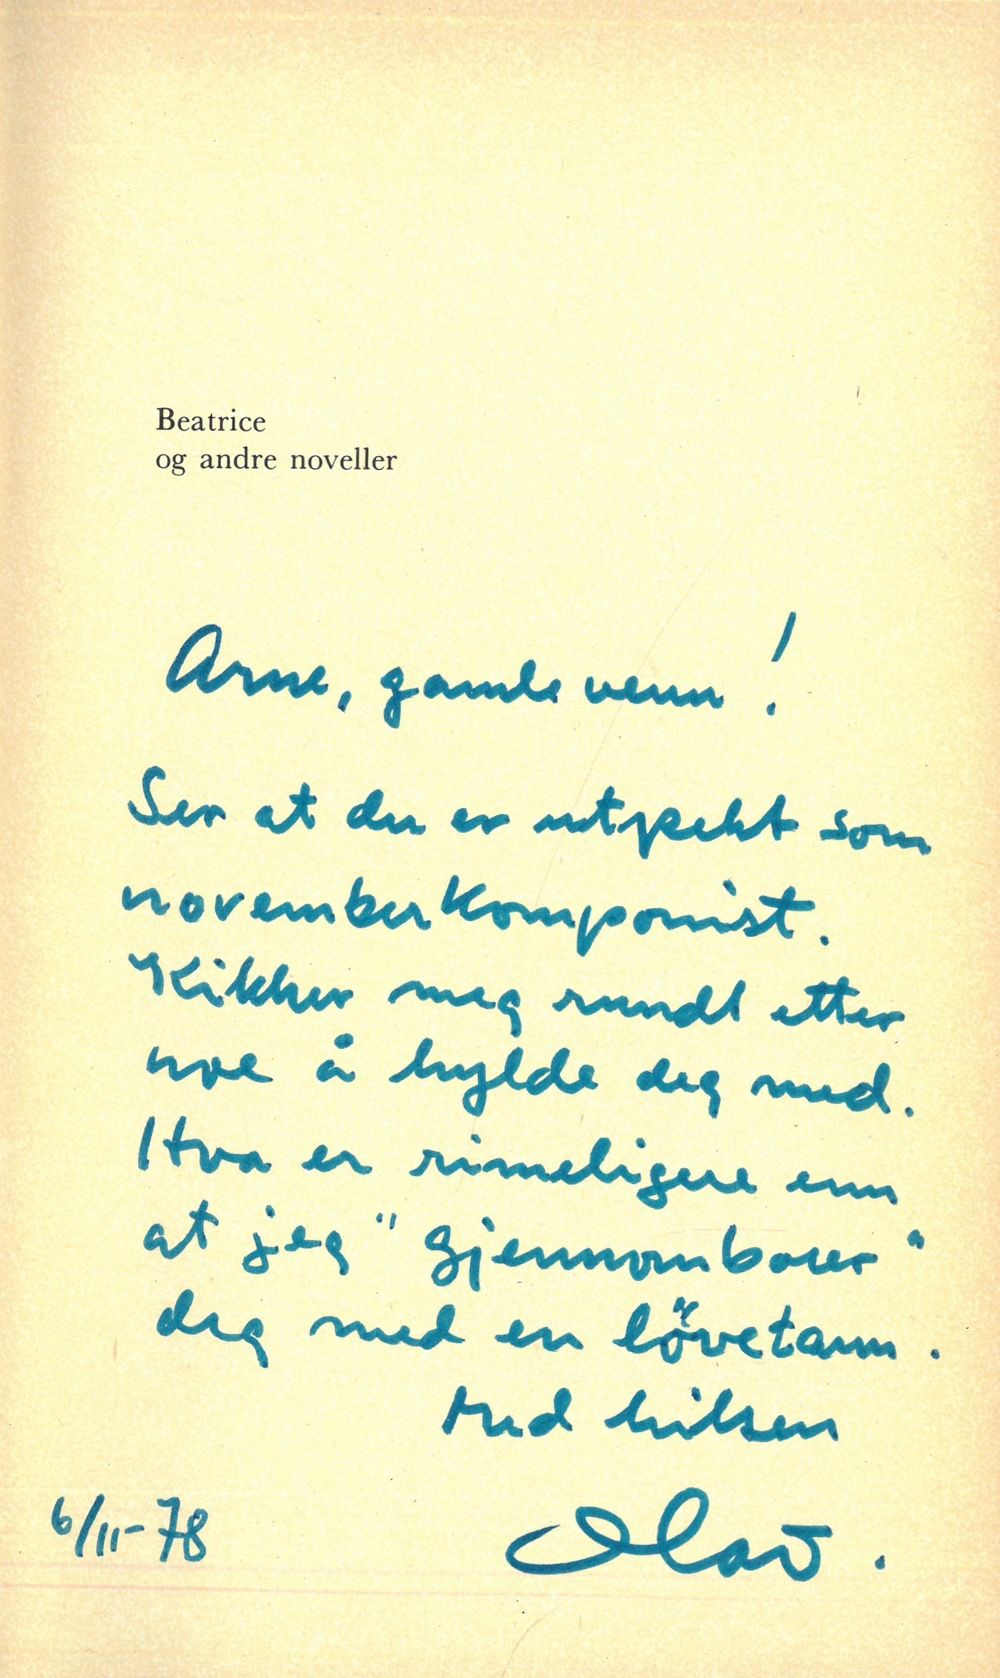 Beatrice
og andre noveller
Arne, gamle venn!
Ser at du er utpekt som
november komponist.
Kikker meg rundt etter
noe å hylde deg med.
Hva er rimeligere enn
at jeg "gjennomborer"
deg med en lövetann.
Med hilsen
6/11-78
Olav.